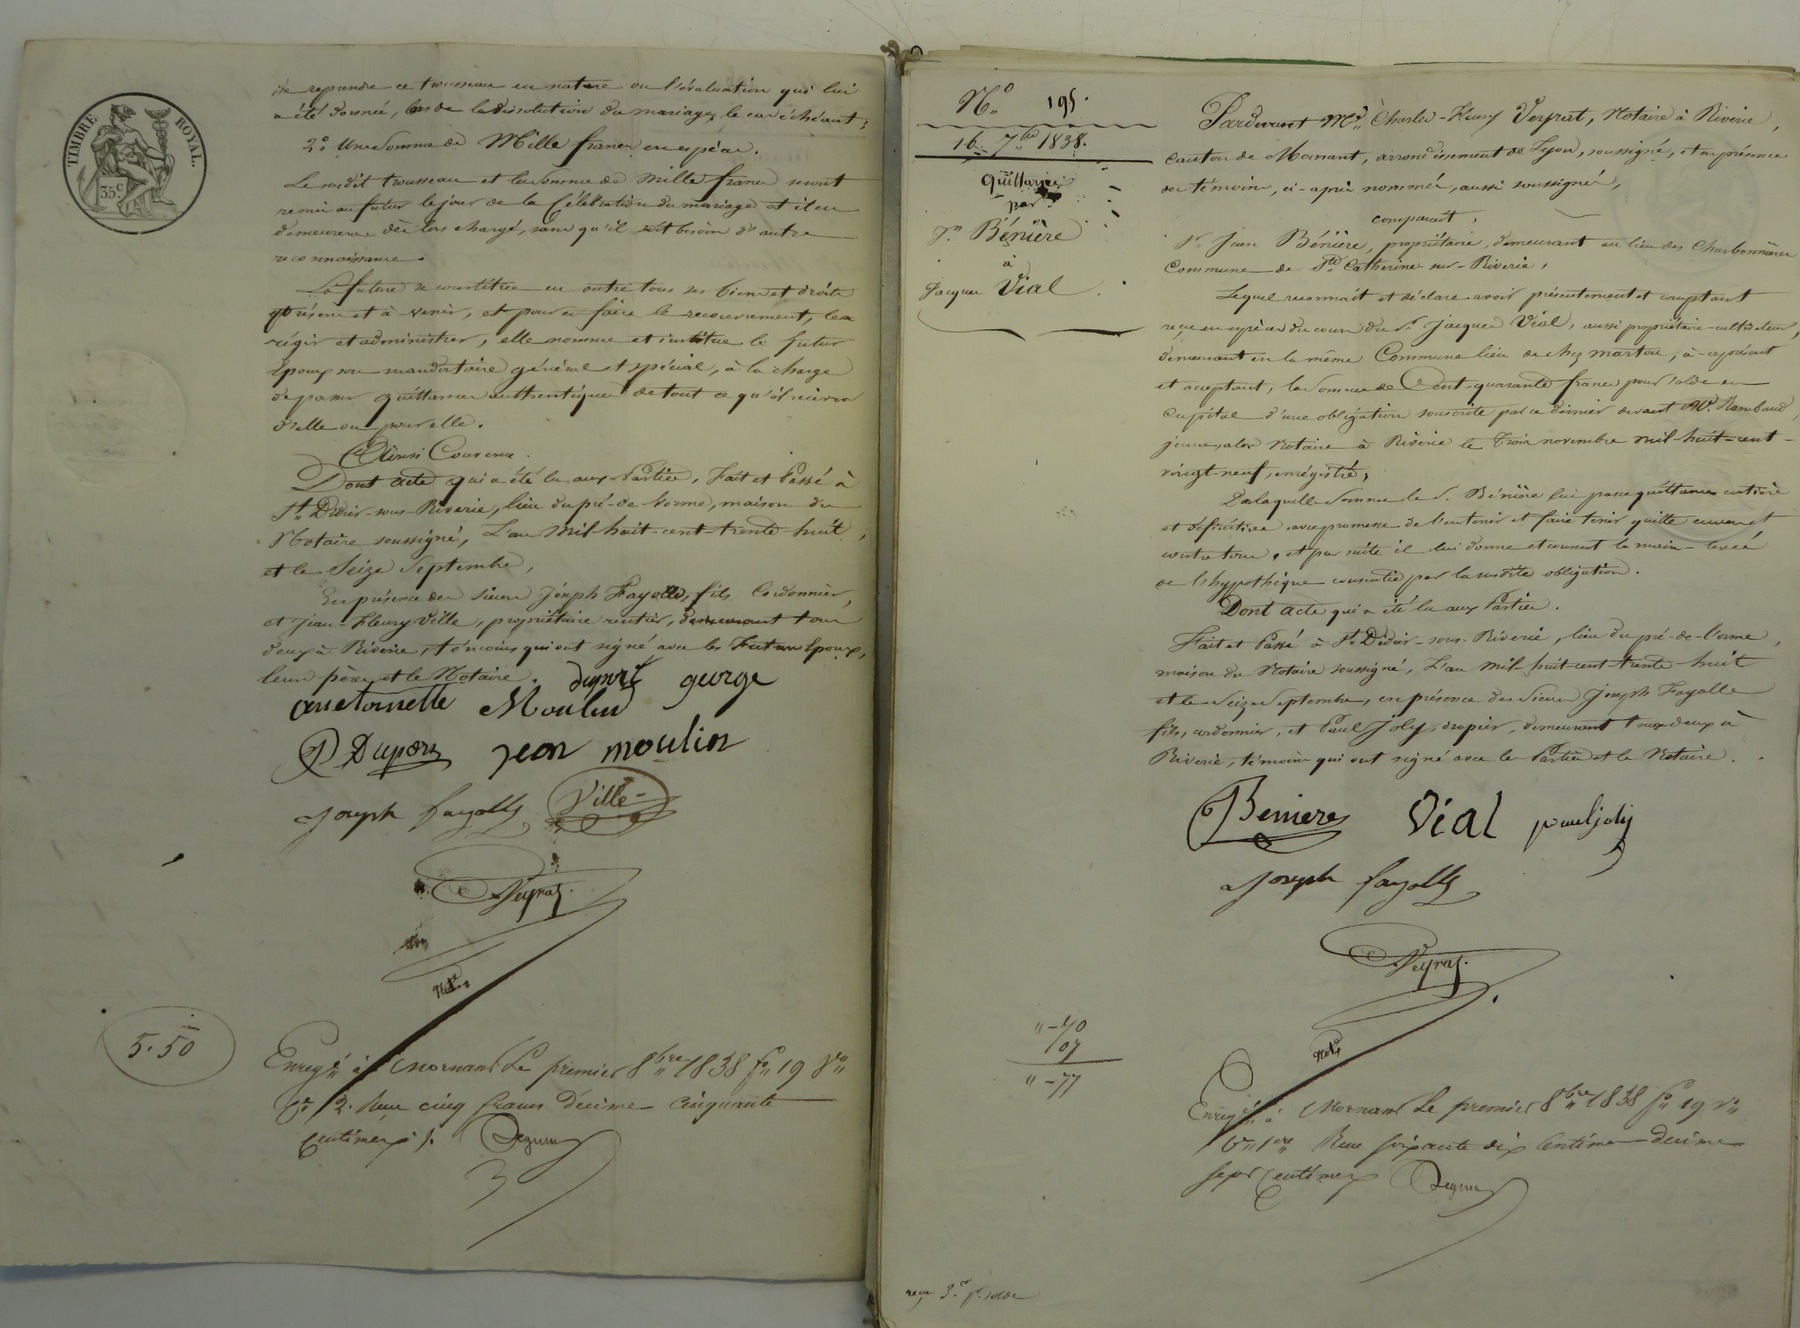 TIMBRE ROYAL.
35c
de reprendre ce trousseau en nature ou l'évaluation qui lui
a été donnée, lors de la dissolution du mariage, le cas échéant;
2.° Une Somme de Mille francs en espèces.
Le susdit trousseau et la Somme de mille francs seront
remis au futur le jour de la Célébration du mariage et il en
demeurera dès lors chargé, sans qu'il soit besoin d'autre
reconnaissance.
La future se constitue en outre tous ses biens et droits
présens et à venir, et pour en faire le recouvrement, les
régir et administrer, elle nomme et institue le futur
Epoux son mandataire général et spécial, à la charge
de passer quittances authentiques de tout ce qu'il recevra
d'elle ou pour elle.
Ainsi Convenu.
Dont acte qui a été lu aux Parties, Fait et Passé à
St. Didier-sous-Riverie, lieu du pré-de-l'orme, maison du
Notaire soussigné, L'an Mil-huit-cent-trente-huit,
et le Seize Septembre,
En présence des sieurs Joseph Fayolle, fils Cordonnier,
et Jean-Fleury Ville, propriétaire rentier, demeurant tous
deux à Riverie, témoins qui ont signé avec les Futurs Epoux,
leurs pères et le Notaire. george
antoinette Moulin
jean moulin
Joseph fayolle Ville
Peyrat
Not.re
5.50
Enreg.é à Mornant Le premier 8bre 1838 f.o 19 V.o
C.e 2. Reçu cinq francs Décime Cinquante
Centimes
N.° 195.
16. 7.bre 1838.
Quittance
par
J.n Bénière
à
Jacques Vial
Pardevant M.e Charles-Fleury Peyrat, Notaire à Riverie,
canton de Mornant, arrondissement de Lyon, soussigné, et en présence
des témoins, ci-après nommés, aussi soussignés,
comparait,
S.r Jean Bénière, propriétaire, demeurant au lieu des Charbonnières
Commune de Ste Catherine-sur-Riverie,
Lequel reconnait et déclare avoir présentement et comptant
reçu en espèces du cours du S.r Jacques Vial, aussi propriétaire-cultivateur,
demeurant en la même Commune lieu de chez marton, à-ce présent
et acceptant, la Somme de Cent-quarante francs pour solde en
Capital d'une obligation souscrite par ce dernier devant M.e Rambaud,
jeune, alors Notaire à Riverie le Trois novembre mil-huit-cent-
vingt-neuf, enregistré;
De laquelle Somme le S. Bénière lui passe quittance entière
et définitive avec promesse de l'entenir et faire tenir quitte envers et
contre tous, et par suite il lui donne et consent la main-levée
de l'hypothèque consentie par la susdite obligation.
Dont acte qui a été lu aux Parties.
Fait et Passé à St. Didier-sous-Riverie, lieu du pré-de-l'orme,
maison du Notaire soussigné, L'an mil-huit-cent-trente-huit
et le Seize Septembre, en présence des Sieurs Joseph Fayolle
fils, cordonnier, et Paul Joly, drapier, demeurant tous deux à
Riverie, témoins qui ont signé avec les Parties et le Notaire.
Beniere Vial paul joly
Joseph fayolle
Peyrat
Not.re
"-70
07
"-77
Enreg.é à Mornant Le premier 8bre 1838 f.o 19 V.o
C.e 1ere Reçu soixante dix Centimes décime
sept Centimes
reçu 3.f p.r solde